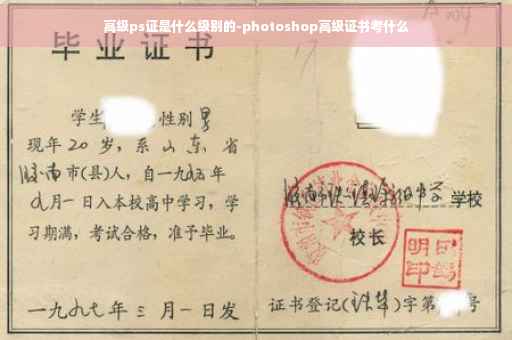 高级ps证是什么级别的-photoshop高级证书考什么
毕业证书
学生 性别男
现年20岁，系山东省
济南市(县)人，自一九九五年
九月一日入本校高中学习，学
习期满，考试合格，准予毕业。
一九九七年三月一日发
学校
校长
明印
证书登记( )字第 号